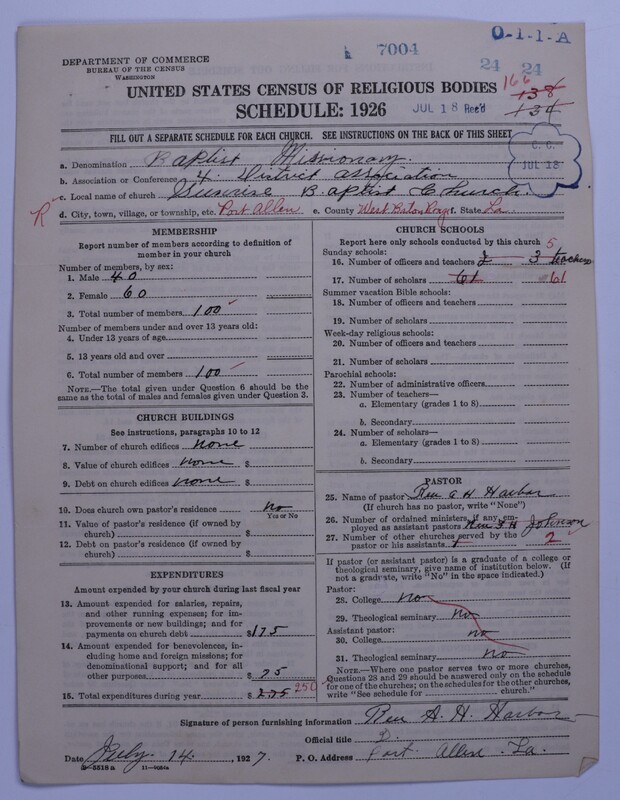 0-1-1-A
7004
24 24
DEPARTMENT OF COMMERCE
BUREAU OF THE CENSUS
WASHINGTON
166
138
134
UNITED STATES CENSUS OF RELIGIOUS BODIES
SCHEDULE: 1926
JUL 18 Rec'd
FILL OUT A SEPARATE SCHEDULE FOR EACH CHURCH. SEE INSTRUCTIONS ON THE BACK OF THIS SHEET
C. C.
JUL 18
a. Denomination Baptist Missionary
b. Association or Conference 4. District association
c. Local name of church Sunrise Baptist Church
R
d. City, town, village, or township, etc. Port Allen e. County West Baton Rouge f. State La
MEMBERSHIP
Report number of members according to definition of
member in your church
Number of members, by sex:
1. Male 40
2. Female 60
3. Total number of members 100
Number of members under and over 13 years old:
4. Under 13 years of age
5. 13 years old and over
6. Total number of members 100
NOTE.—The total given under Question 6 should be the
same as the total of males and females given under Question 3.
CHURCH BUILDINGS
See instructions, paragraphs 10 to 12
7. Number of church edifices none
8. Value of church edifices none $
9. Debt on church edifices none $
10. Does church own pastor's residence No
Yes or No
11. Value of pastor's residence (if owned by
church) $
12. Debt on pastor's residence (if owned by
church) $
EXPENDITURES
Amount expended by your church during last fiscal year
13. Amount expended for salaries, repairs,
and other running expenses; for im-
provements or new buildings; and for
payments on church debt $175
14. Amount expended for benevolences,
including home and foreign missions; for
denominational support; and for all
other purposes $75
15. Total expenditures during year $ 250
CHURCH SCHOOLS
Report here only schools conducted by this church
Sunday schools:
5
16. Number of officers and teachers 2 3 teachers
17. Number of scholars 61 61
Summer vacation Bible schools:
18. Number of officers and teachers
19. Number of scholars
Week-day religious schools:
20. Number of officers and teachers
21. Number of scholars
Parochial schools:
22. Number of administrative officers
23. Number of teachers—
a. Elementary (grades 1 to 8)
b. Secondary
24. Number of scholars—
a. Elementary (grades 1 to 8)
b. Secondary
PASTOR
25. Name of pastor Rev A H Harbor
(If church has no pastor, write "None")
26. Number of ordained ministers, if any, em-
ployed as assistant pastors Rev F H Johnson
27. Number of other churches served by the
pastor or his assistants 2
If pastor (or assistant pastor) is a graduate of a college or
theological seminary, give name of institution below. (If
not a graduate, write "No" in the space indicated.)
Pastor:
28. College No
29. Theological seminary No
Assistant pastor:
30. College no
31. Theological seminary No
NOTE.—Where one pastor serves two or more churches,
Questions 28 and 29 should be answered only on the schedule
for one of the churches; on the schedules for the other churches,
write "See schedule for church."
Signature of person furnishing information Rev A. H. Harbor
Official title
Date July 14, 1927. P. O. Address Port Allen La.